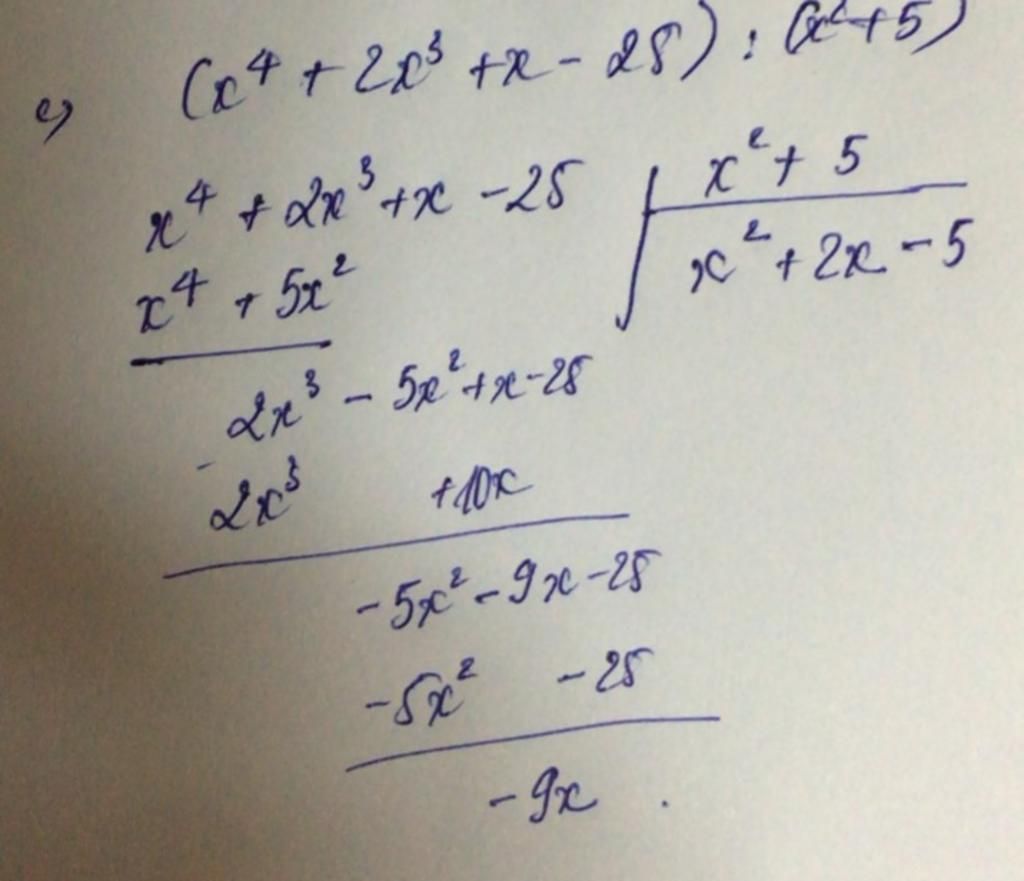 c) (x⁴ + 2x³ + x - 25) : (x² + 5)
x⁴ + 2x³ + x - 25 x² + 5
x⁴ + 5x² x² + 2x - 5
2x³ - 5x² + x - 25
-
2x³ + 10x
-5x² - 9x - 25
-5x² - 25
-9x .